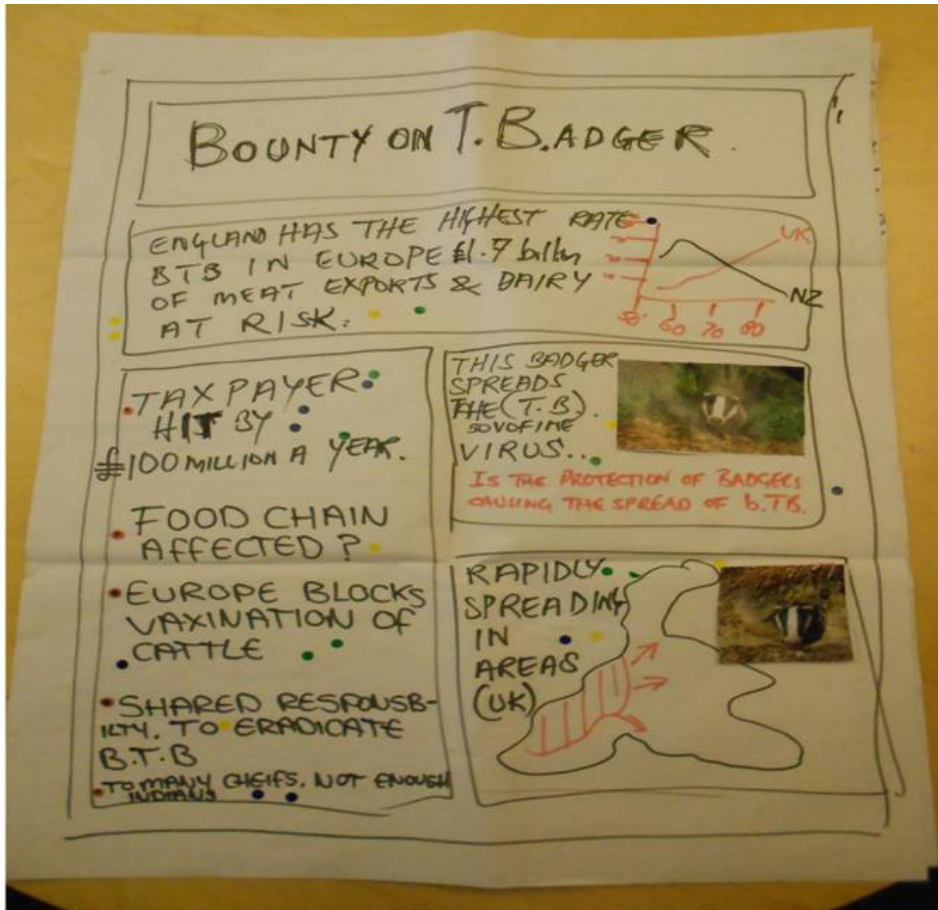 BOUNTY ON T.BADGER.
ENGLAND HAS THE HIGHEST RATE
BTB IN EUROPE £1.7 billion
OF MEAT EXPORTS & DAIRY
AT RISK.
UK
NZ
50' 60 70 80
TAX PAYER
HIT BY
£100 MILLION A YEAR.
FOOD CHAIN
AFFECTED?
EUROPE BLOCKS
VAXINATION OF
CATTLE
SHARED RESPONSB-
ILTY. TO ERADICATE
B.T.B
TO MANY CHEIFS. NOT ENOUGH
INDIANS
THIS BADGER
SPREADS
THE (T.B).
BOVOFINE
VIRUS..
IS THE PROTECTION OF BADGERS
CAUSING THE SPREAD OF b.TB.
RAPIDLY
SPREADING
IN
AREAS
(UK)